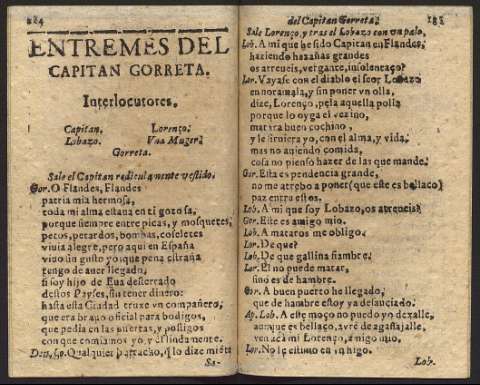 184
ENTREMES DEL
CAPITAN GORRETA.
Interlocutores.
Capitan. Lorenço.
Lobazo. Vna Muger.
Gorreta.
Sale el Capitan ridiculamente vestido.
Gor. O Flandes, Flandes
patria mia hermosa,
toda mi alma estaua en ti gozosa,
porque siempre entre picas, y mosquetes,
petos, petardos, bombas, coseletes
viuia alegre, pero aqui en España
viuo sin gusto
tengo de auer llegado,
si soy hijo de Eua desterrado
destos Payses, sin tener dinero:
hasta esta Ciudad truxe vn compañero,
que era brauo oficial para bodigos,
que pedia en las puertas, y postigos
con que comiamos yo y
Qualquier q lo dize miéte
Sa-
del Capitan Gorreta.
185
Sale Lorenço, y tras el Lobazo con vn palo.
Lob. A mi que he sido Capitan en Flandes,
haziendo hazañas grandes
os atreueis, vergante, insolentaço?
Lor. Vayase con el diablo el seor Lobazo
enoramala, y sin poner vn olla,
dize, Lorenço, pela aquella polla
porque lo oyga el vezino,
matira buen cochino,
y le siruiera yo, con el alma, y vida,
mas no auiendo comida,
cosa no pienso hazer de las que mande.
Gor. Esta es pendencia grande,
no me atrebo a poner (que este es bellaco)
paz entre estos.
Lob. A mi que soy Lobazo, os atreueis?
Gor. Este es amigo mio.
Lob. A mataros me obligo.
Lor. De que?
Lob. De que gallina fiambre.
Lor. El no puede matar,
sino es de hambre.
Gor. A buen puerto he llegado,
que de hambre estoy ya desauciado.
Ap. Lob. A este moço no puedo yo dexalle,
aunque es bellaço, avré de agasajalle,
ven acá mi Lorenço, amigo mio.
Lor. No le estimo en vn higo.
Lob.